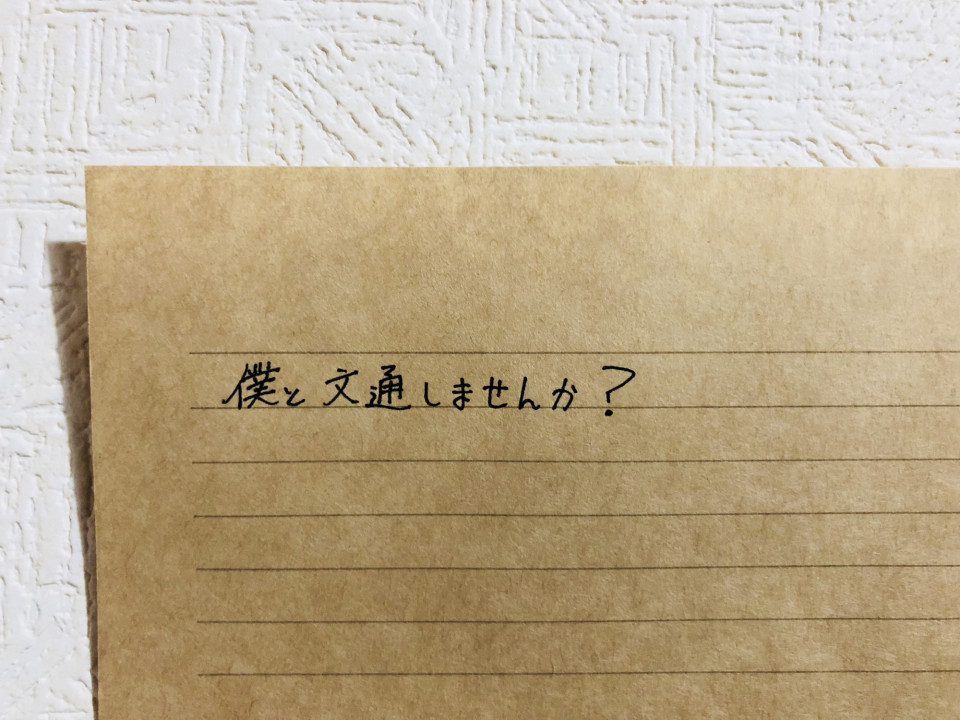 僕と文通しませんか？